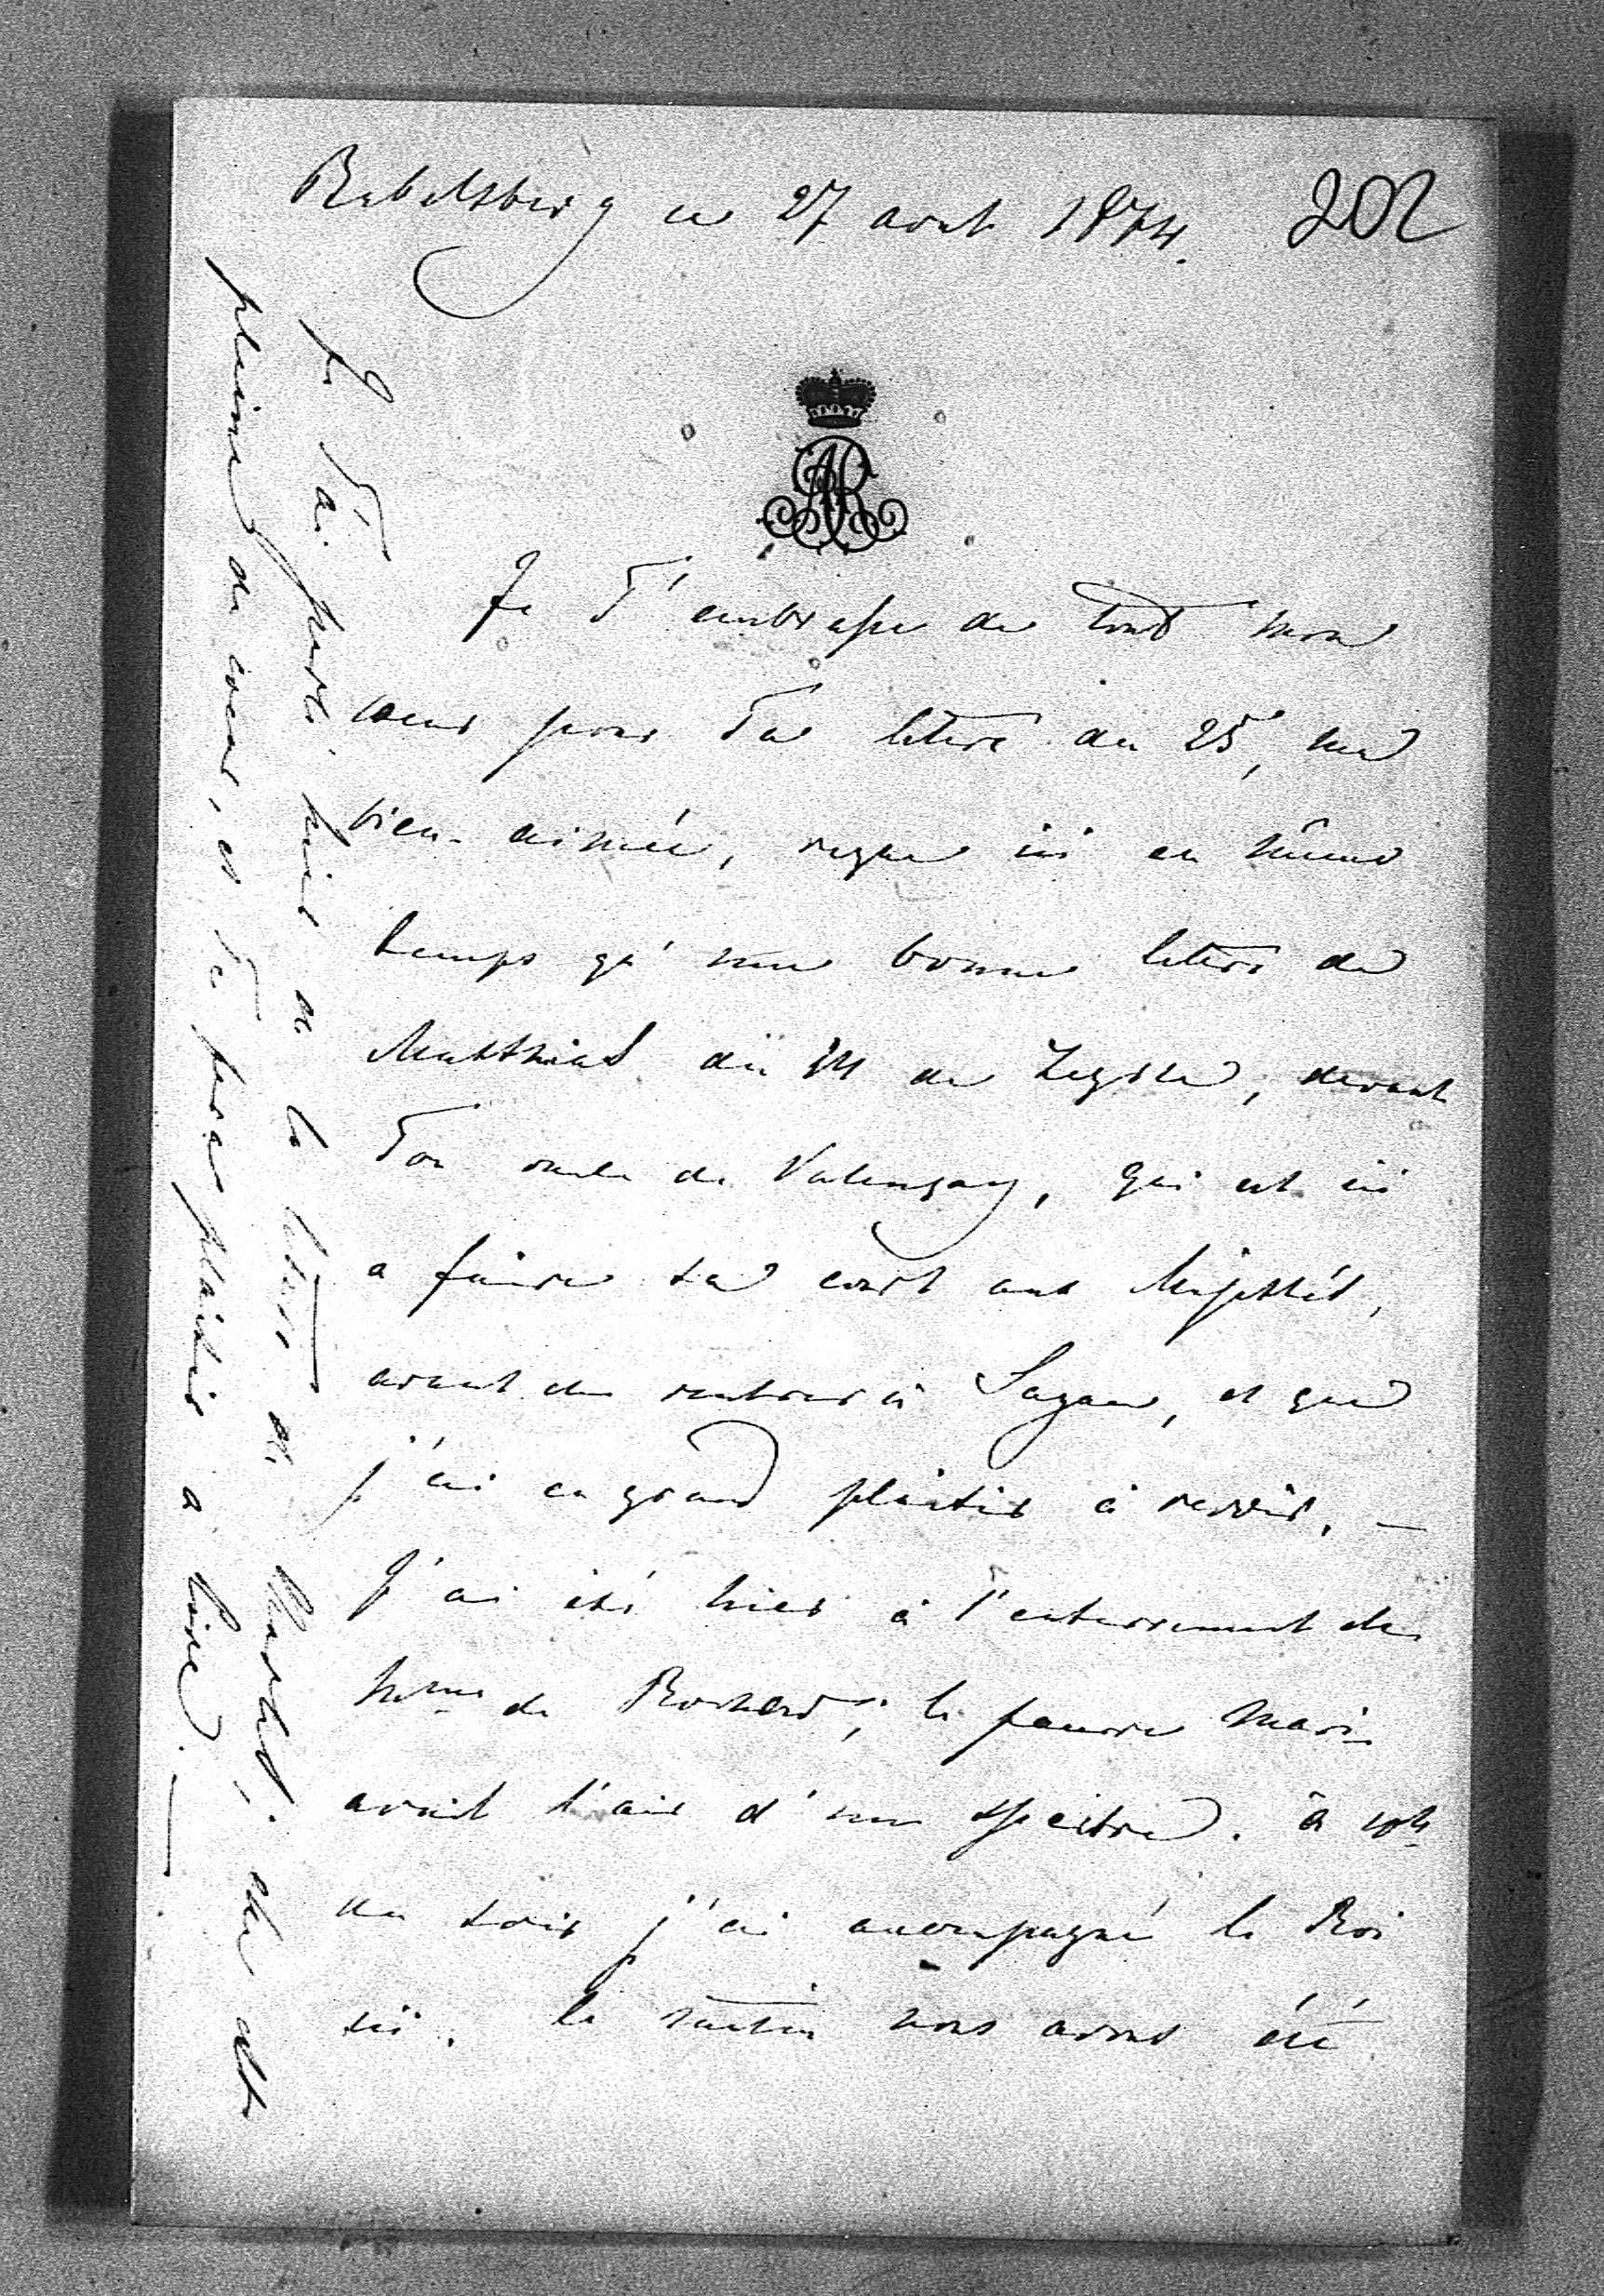 Babelsberg ce 27 aout 1874. 202
AR
Je T'embrasse de tout mon
coeur pour Ta lettre du 25, ma
bien-aimée, reçue ici en même
temps qu'une bonne lettre de
Matthias du 24 de , devant
Ton oncle de Valençay, qui est ici
a faire sa court aux Majestés,
avant de rentrer à Sagan, et que
j'ai eu grand plaisir à revoir. —
J'ai été hier à l'enterrement de
Mme de ; le pauvre mari
avait l'air d'un spectre. à 10h
du soir j'ai accompagné le Roi
ici. le matin nous avons été
Je T'ai parlé hier de la lettre de ; elle est
pleine de coeur, et Te fera plaisir a lire. —